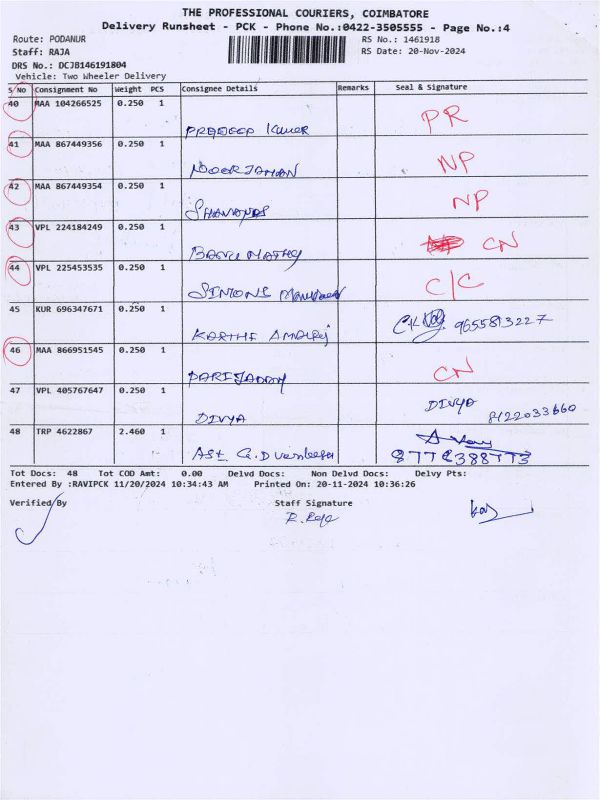 THE PROFESSIONAL COURIERS, COIMBATORE
Delivery Runsheet - PCK - Phone No.:0422-3505555 - Page No.:4
Route: PODANUR RS No.: 1461918
Staff: RAJA RS Date: 20-Nov-2024
DRS No.: DCJB146191804
Vehicle: Two Wheeler Delivery
S/No Consignment No Weight PCS Consignee Details Remarks Seal & Signature
40 MAA 104266525 0.250 1
PRADEEP Kumer PR
41 MAA 867449356 0.250 1
NOORJAHAN NP
42 MAA 867449354 0.250 1
NP
43 VPL 224184249 0.250 1
BANU MATHY CN
44 VPL 225453535 0.250 1
SIMONS C/C
45 KUR 696347671 0.250 1
KARTHI AMALRJ 9655813227
46 MAA 866951545 0.250 1
CN
47 VPL 405767647 0.250 1
DIVYA DIVYA 8122033660
48 TRP 4622867 2.460 1
Ast G.D
Tot Docs: 48 Tot COD Amt: 0.00 Delvd Docs: Non Delvd Docs: Delvy Pts:
Entered By :RAVIPCK 11/20/2024 10:34:43 AM Printed On: 20-11-2024 10:36:26
Verified By Staff Signature
R. Raja